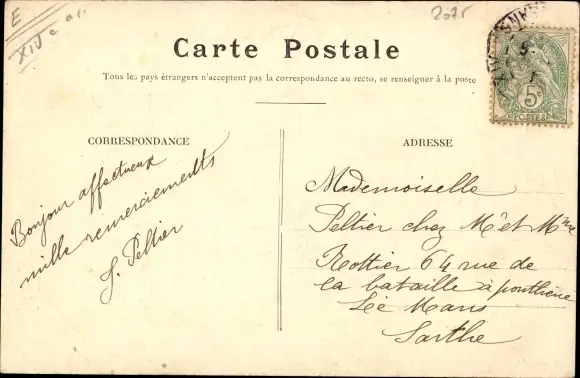 E
XIVe arr
2075
Carte Postale
Tous les pays étrangers n'acceptent pas la correspondance au recto, se renseigner à la poste
CORRESPONDANCE
ADRESSE
5c
POSTES
Bonjour affectueux
mille remerciements
J. Peltier
Mademoiselle
Peltier chez Mr et Mme
Rottier 64 rue de
la bataille à pontlieue
Le Mans
Sarthe